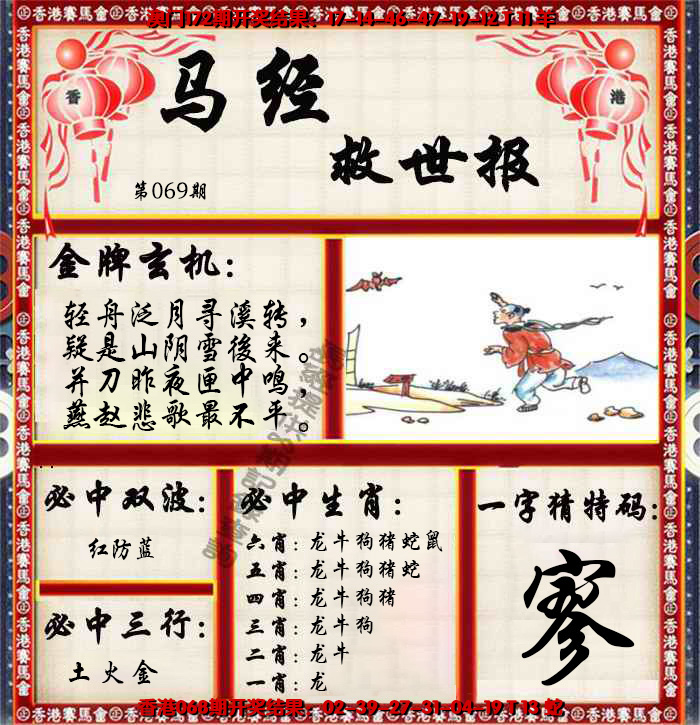 澳门172期开奖结果：17-14-46-47-19-12 T 11 羊
香
港
马经
救世报
第069期
金牌玄机：
轻舟泛月寻溪转，
疑是山阴雪後来。
并刀昨夜匣中鸣，
燕赵悲歌最不平。
必中双波：
红防蓝
必中三行：
土火金
必中生肖：
六肖：龙牛狗猪蛇鼠
五肖：龙牛狗猪蛇
四肖：龙牛狗猪
三肖：龙牛狗
二肖：龙牛
一肖：龙
一字猜特码：
寥
香港068期开奖结果：02-39-27-31-04-19 T 13 蛇
香港賽馬會